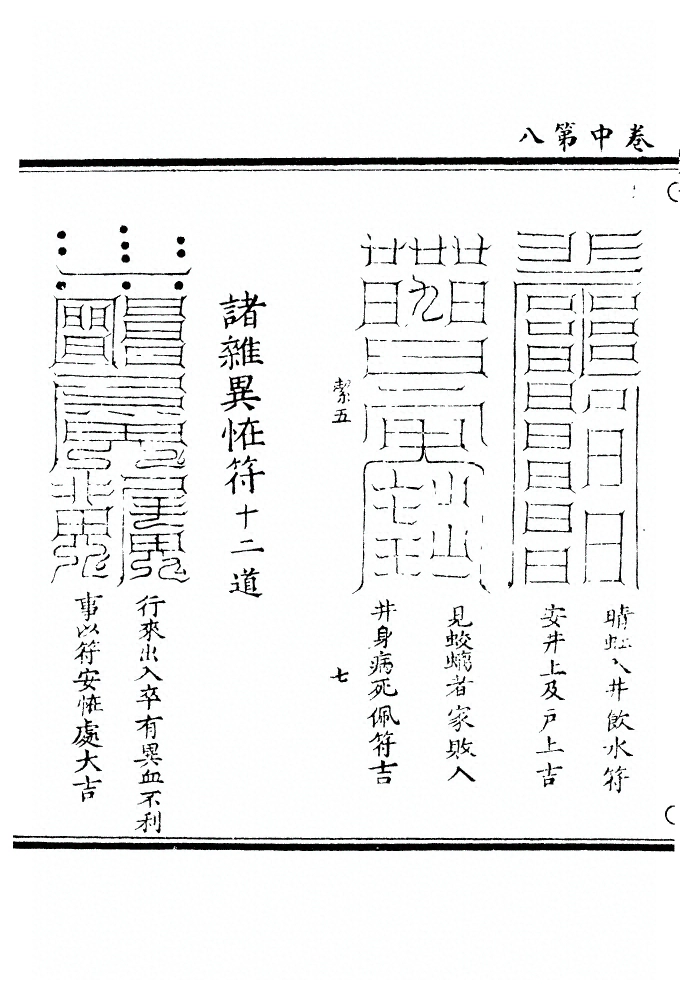 卷中第八
晴虹入井飲水符
安井上及戶上吉
見蛟螭者家敗入
井身病死佩符吉
絜五
七
諸雜異怪符十二道
行來出入卒有異血不利
事以符安怪處大吉